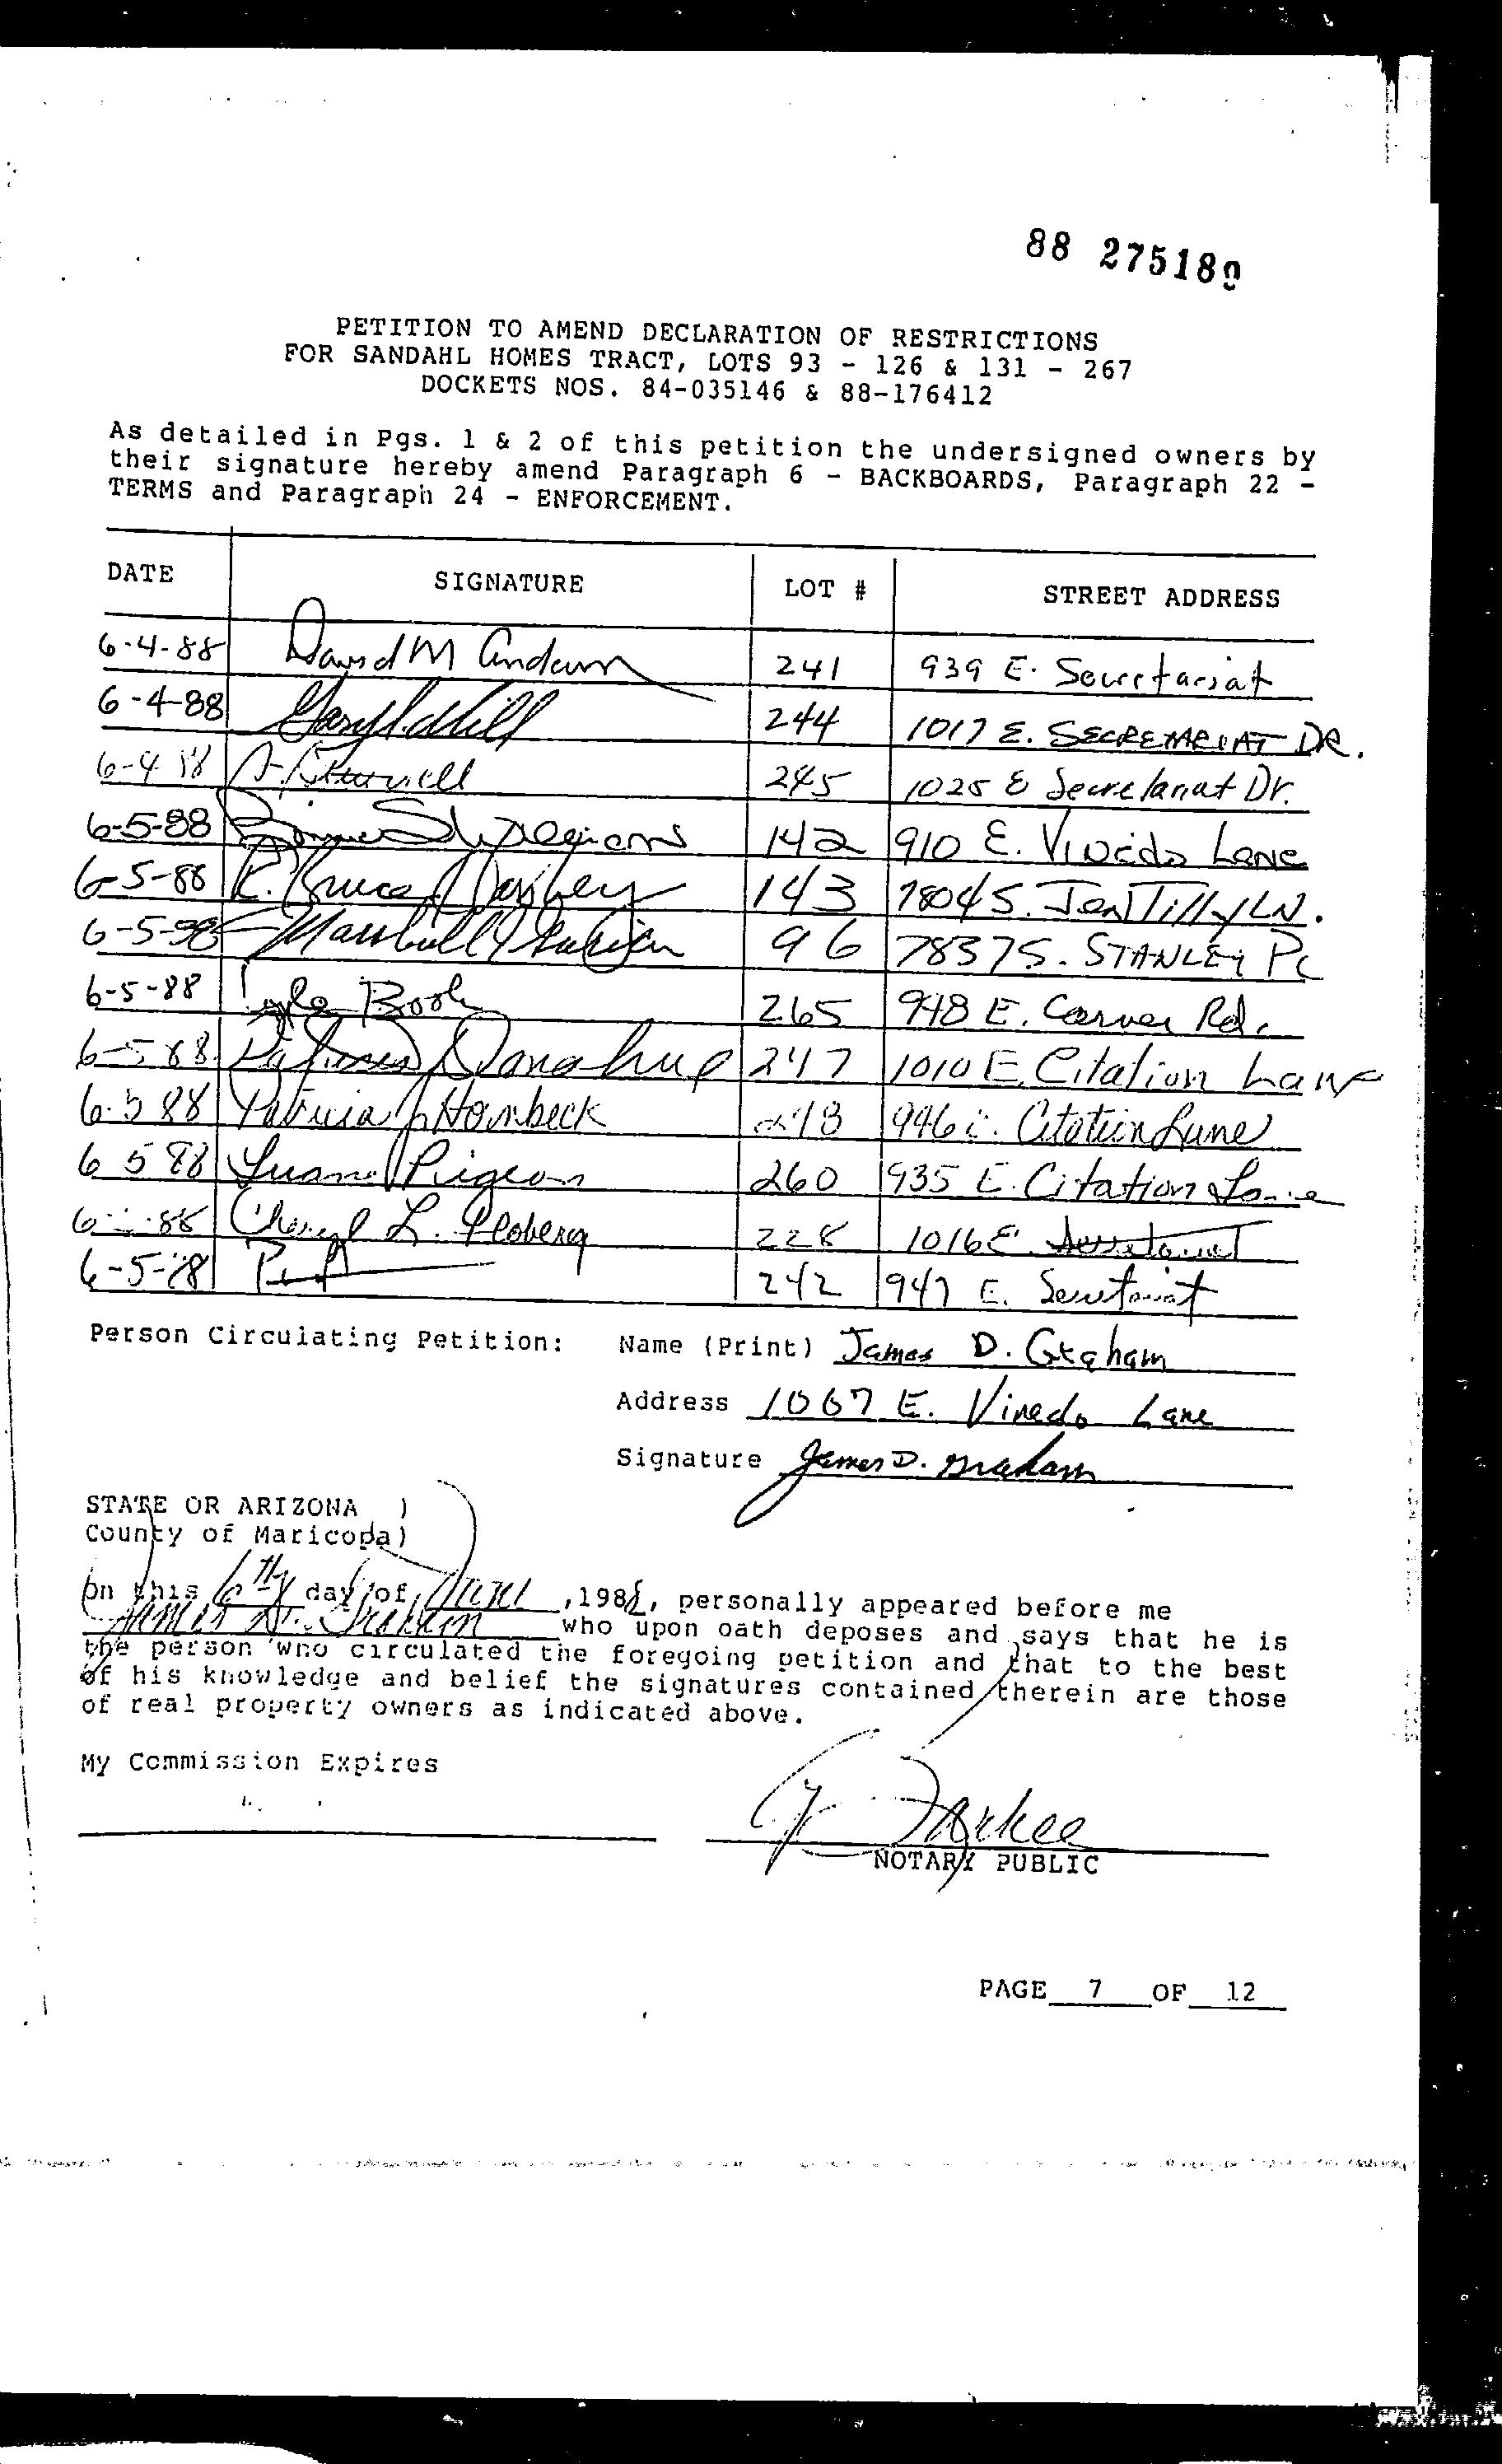 88 275189
PETITION TO AMEND DECLARATION OF RESTRICTIONS
FOR SANDAHL HOMES TRACT, LOTS 93 - 126 & 131 - 267
DOCKETS NOS. 84-035146 & 88-176412
As detailed in Pgs. 1 & 2 of this petition the undersigned owners by
their signature hereby amend Paragraph 6 - BACKBOARDS, Paragraph 22 -
TERMS and Paragraph 24 - ENFORCEMENT.
DATE SIGNATURE LOT # STREET ADDRESS
6-4-88 David M 241 939 E. Secretariat
6-4-88 Hill 244 1017 E. SECRETARIAT DR.
6-4 88 245 1025 E Secretariat Dr.
6-5-88 142 910 E. Vinedo Lane
6-5-88 R. Bruce 143 7804 S. JenTilly LN.
6-5-88 Marshall 96 7837 S. STANLEY PL
6-5-88 Book 265 948 E. Carver Rd.
6-5 88 Donahue 247 1010 E Citation Lane
6.5 88 Patricia J Hornbeck 946 E. Citation Lane
6 5 88 Pigeon 260 935 E. Citation Lane
Cheryl L. Ploberg 228 1016 E. Secretariat
6-5-88 242 947 E. Secretariat
Person Circulating Petition: Name (Print) James D. Graham
Address 1067 E. Vinedo Lane
Signature James D. Graham
STATE OR ARIZONA )
County of Maricopa)
On this 6th day of June, 1988, personally appeared before me
James D. Graham who upon oath deposes and says that he is
the person who circulated the foregoing petition and that to the best
of his knowledge and belief the signatures contained therein are those
of real property owners as indicated above.
My Commission Expires
NOTARY PUBLIC
PAGE 7 OF 12